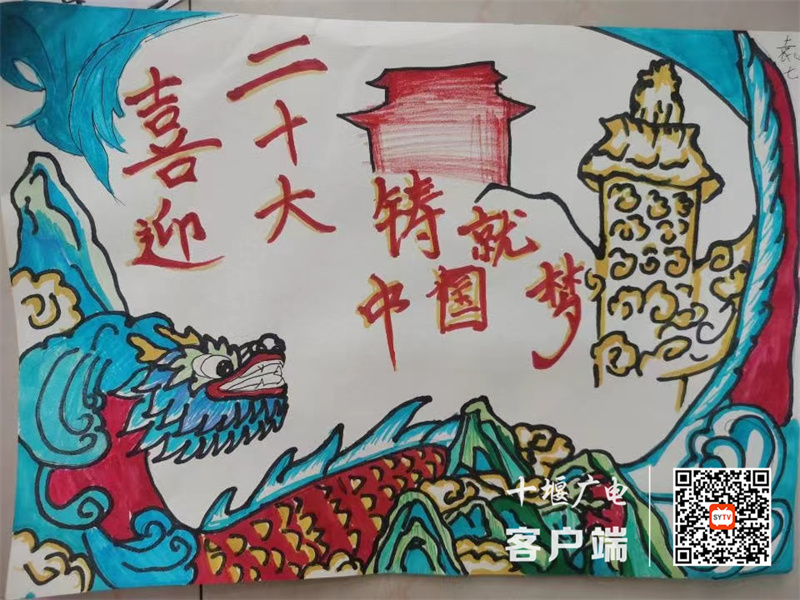 喜迎
二十大
铸就
中国梦
十堰广电
客户端
SYTV